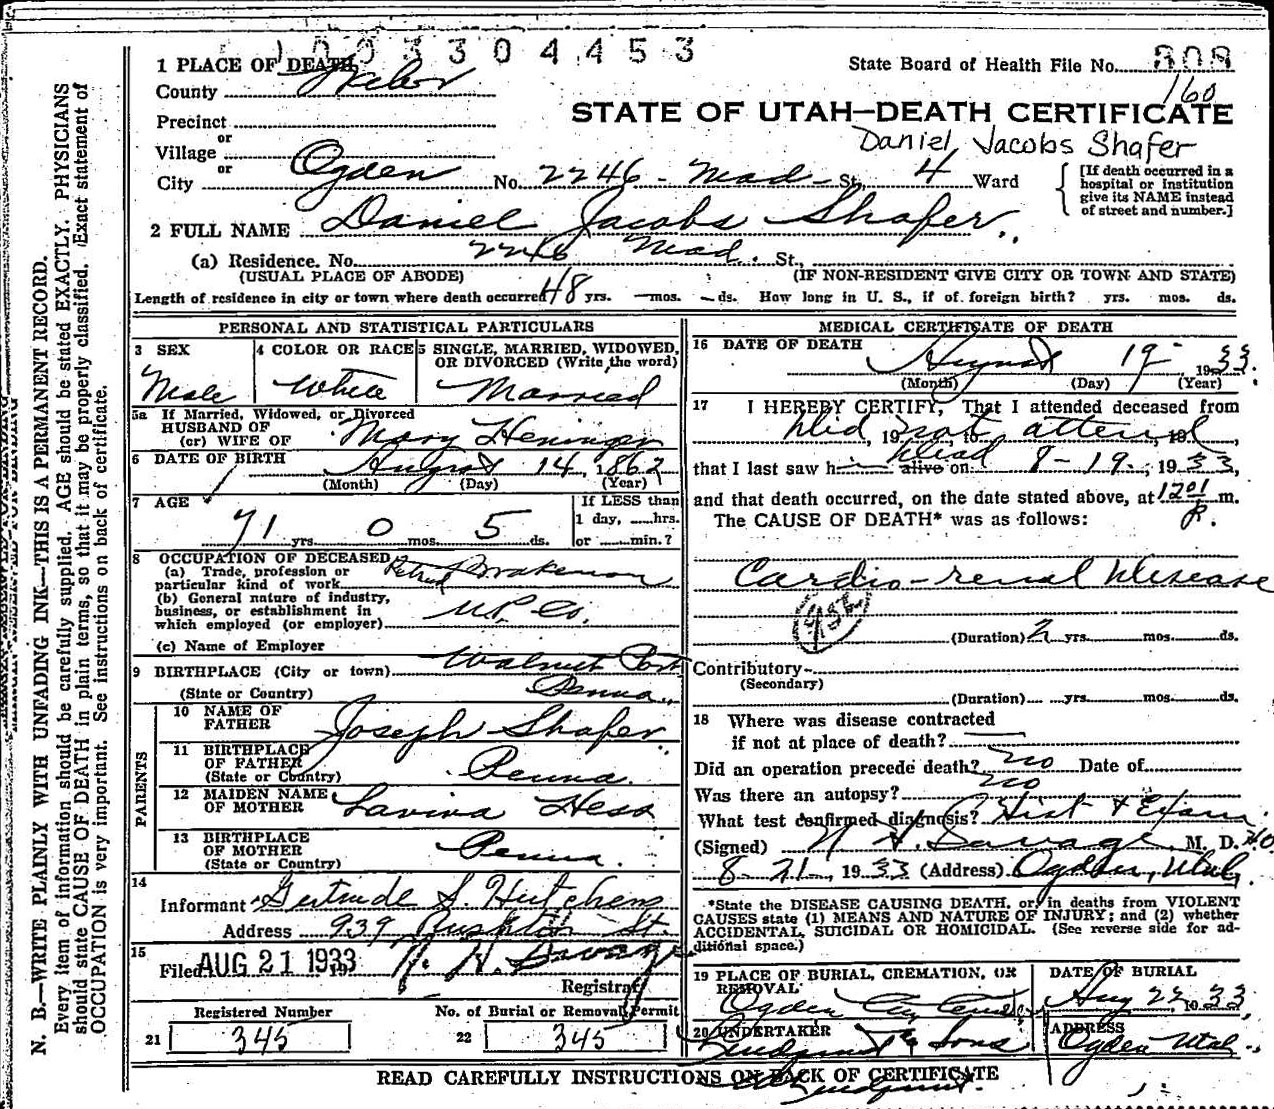 1003304453
1 PLACE OF DEATH
State Board of Health File No. 808
County Weber
160
STATE OF UTAH—DEATH CERTIFICATE
Precinct
or
Daniel Jacobs Shafer
Village
or
City Ogden No. 2246 - Mad - St. 4 Ward
[If death occurred in a hospital or institution give its NAME instead of street and number.]
2 FULL NAME Daniel Jacobs Shafer
(a) Residence. No. 2246 Mad. St.,
(USUAL PLACE OF ABODE) (IF NON-RESIDENT GIVE CITY OR TOWN AND STATE)
Length of residence in city or town where death occurred 48 yrs. — mos. — ds. How long in U. S., if of foreign birth? yrs. mos. ds.
PERSONAL AND STATISTICAL PARTICULARS
3 SEX 4 COLOR OR RACE 5 SINGLE, MARRIED, WIDOWED, OR DIVORCED (Write the word)
Male White Married
5a If Married, Widowed, or Divorced
HUSBAND OF
(or) WIFE OF Mary Heninger
6 DATE OF BIRTH August 14 1862
(Month) (Day) (Year)
7 AGE If LESS than
71 yrs. 0 mos. 5 ds. 1 day, ......hrs.
or ......min.?
8 OCCUPATION OF DECEASED
(a) Trade, profession or
particular kind of work Retired Brakeman
(b) General nature of industry,
business, or establishment in
which employed (or employer) U.P. Co.
(c) Name of Employer
9 BIRTHPLACE (City or town) Walnut Port
(State or Country) Penna.
PARENTS
10 NAME OF
FATHER Joseph Shafer
11 BIRTHPLACE
OF FATHER
(State or Country) Penna.
12 MAIDEN NAME
OF MOTHER Lavina Hess
13 BIRTHPLACE
OF MOTHER
(State or Country) Penna.
14
Informant Gertrude S. Hutchens
Address 939 St.
15
Filed AUG 21 1933 Savage
Registrar
Registered Number No. of Burial or Removal Permit
21 345 22 345
MEDICAL CERTIFICATE OF DEATH
16 DATE OF DEATH
August 19 1933.
(Month) (Day) (Year)
17 I HEREBY CERTIFY, That I attended deceased from
Did, 19 not to attend, 19
that I last saw him alive on dead 8-19-, 1933,
and that death occurred, on the date stated above, at 1201 m.
P.
The CAUSE OF DEATH* was as follows:
Cardio-renal Disease
(Duration) 2 yrs. mos. ds.
Contributory
(Secondary)
(Duration) yrs. mos. ds.
18 Where was disease contracted
if not at place of death?
Did an operation precede death? no Date of
Was there an autopsy? no
What test confirmed diagnosis? Hist + Exam
(Signed) Savage M. D.
8-21-, 1933 (Address) Ogden, Utah.
*State the DISEASE CAUSING DEATH, or, in deaths from VIOLENT
CAUSES state (1) MEANS AND NATURE OF INJURY; and (2) whether
ACCIDENTAL, SUICIDAL OR HOMICIDAL. (See reverse side for ad-
ditional space.)
19 PLACE OF BURIAL, CREMATION, OR REMOVAL DATE OF BURIAL
Ogden City Aug 22 1933
20 UNDERTAKER ADDRESS
Lindquist & Sons Ogden Utah.
Lindquist
READ CAREFULLY INSTRUCTIONS ON BACK OF CERTIFICATE
N. B.—WRITE PLAINLY WITH UNFADING INK—THIS IS A PERMANENT RECORD.
Every item of information should be carefully supplied. AGE should be stated EXACTLY. PHYSICIANS
should state CAUSE OF DEATH in plain terms, so that it may be properly classified. Exact statement of
OCCUPATION is very important. See instructions on back of certificate.